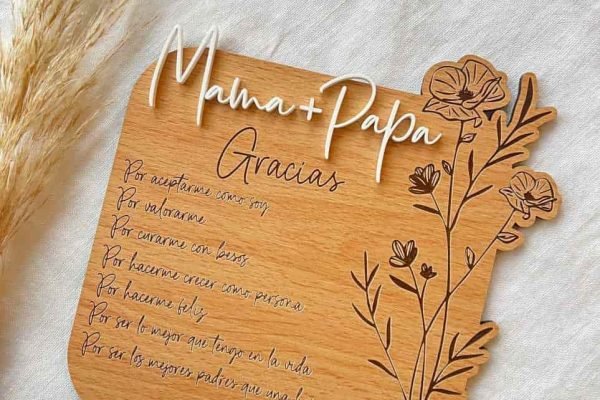 Mama + Papa
Gracias
Por aceptarme como soy
Por valorarme
Por curarme con besos
Por hacerme crecer como persona
Por hacerme feliz
Por ser lo mejor que tengo en la vida
Por ser los mejores padres que una